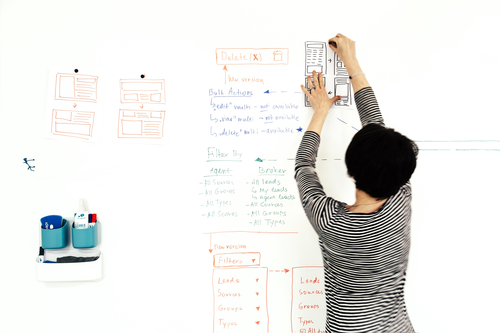 Delete (X)
New version
Bulk Actions
"edit" multi - not available
"view" multi - not available
"delete" multi - available
Filter by
Agent
- All Sources
- All Groups
- All Types
- All Sources
Broker
- All leads
My leads
Agent leads
- All Sources
- All Groups
- All Types
New version
Filters
Leads
Sources
Groups
Types
Leads
Sources
Groups
Types
All